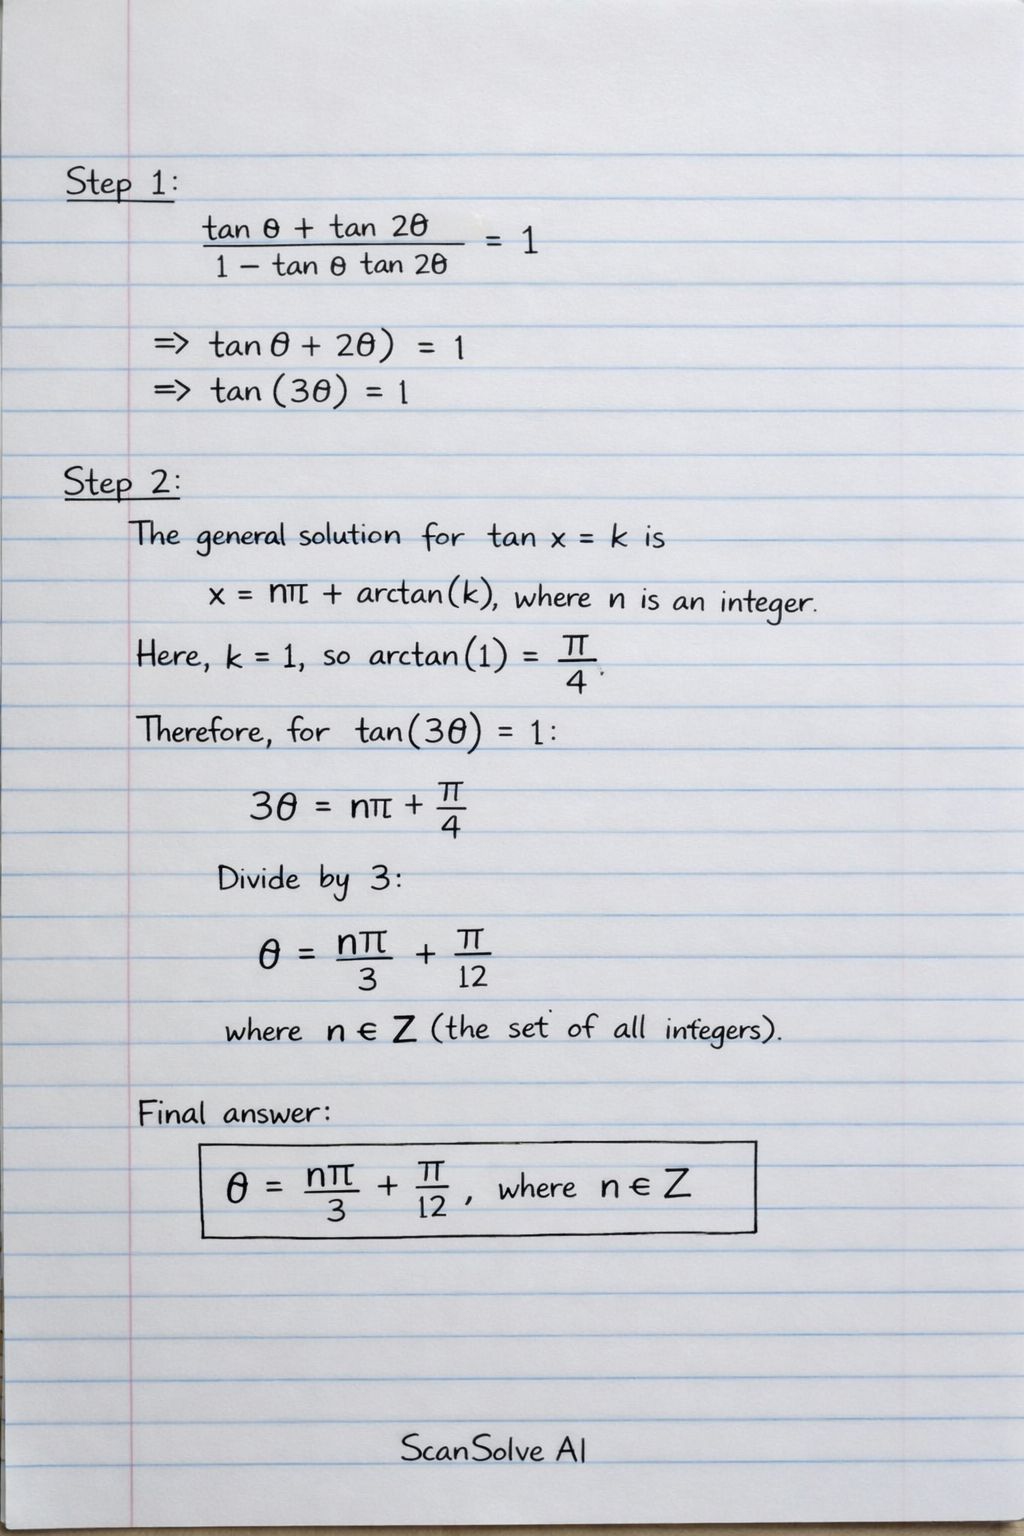 Step 1:
tan θ + tan 2θ
1 − tan θ tan 2θ = 1
=> tan θ + 2θ) = 1
=> tan (3θ) = 1
Step 2:
The general solution for tan x = k is
x = nπ + arctan(k), where n is an integer.
Here, k = 1, so arctan(1) = π/4.
Therefore, for tan(3θ) = 1:
3θ = nπ + π/4
Divide by 3:
θ = nπ/3 + π/12
where n ∈ Z (the set of all integers).
Final answer:
θ = nπ/3 + π/12, where n ∈ Z
ScanSolve AI